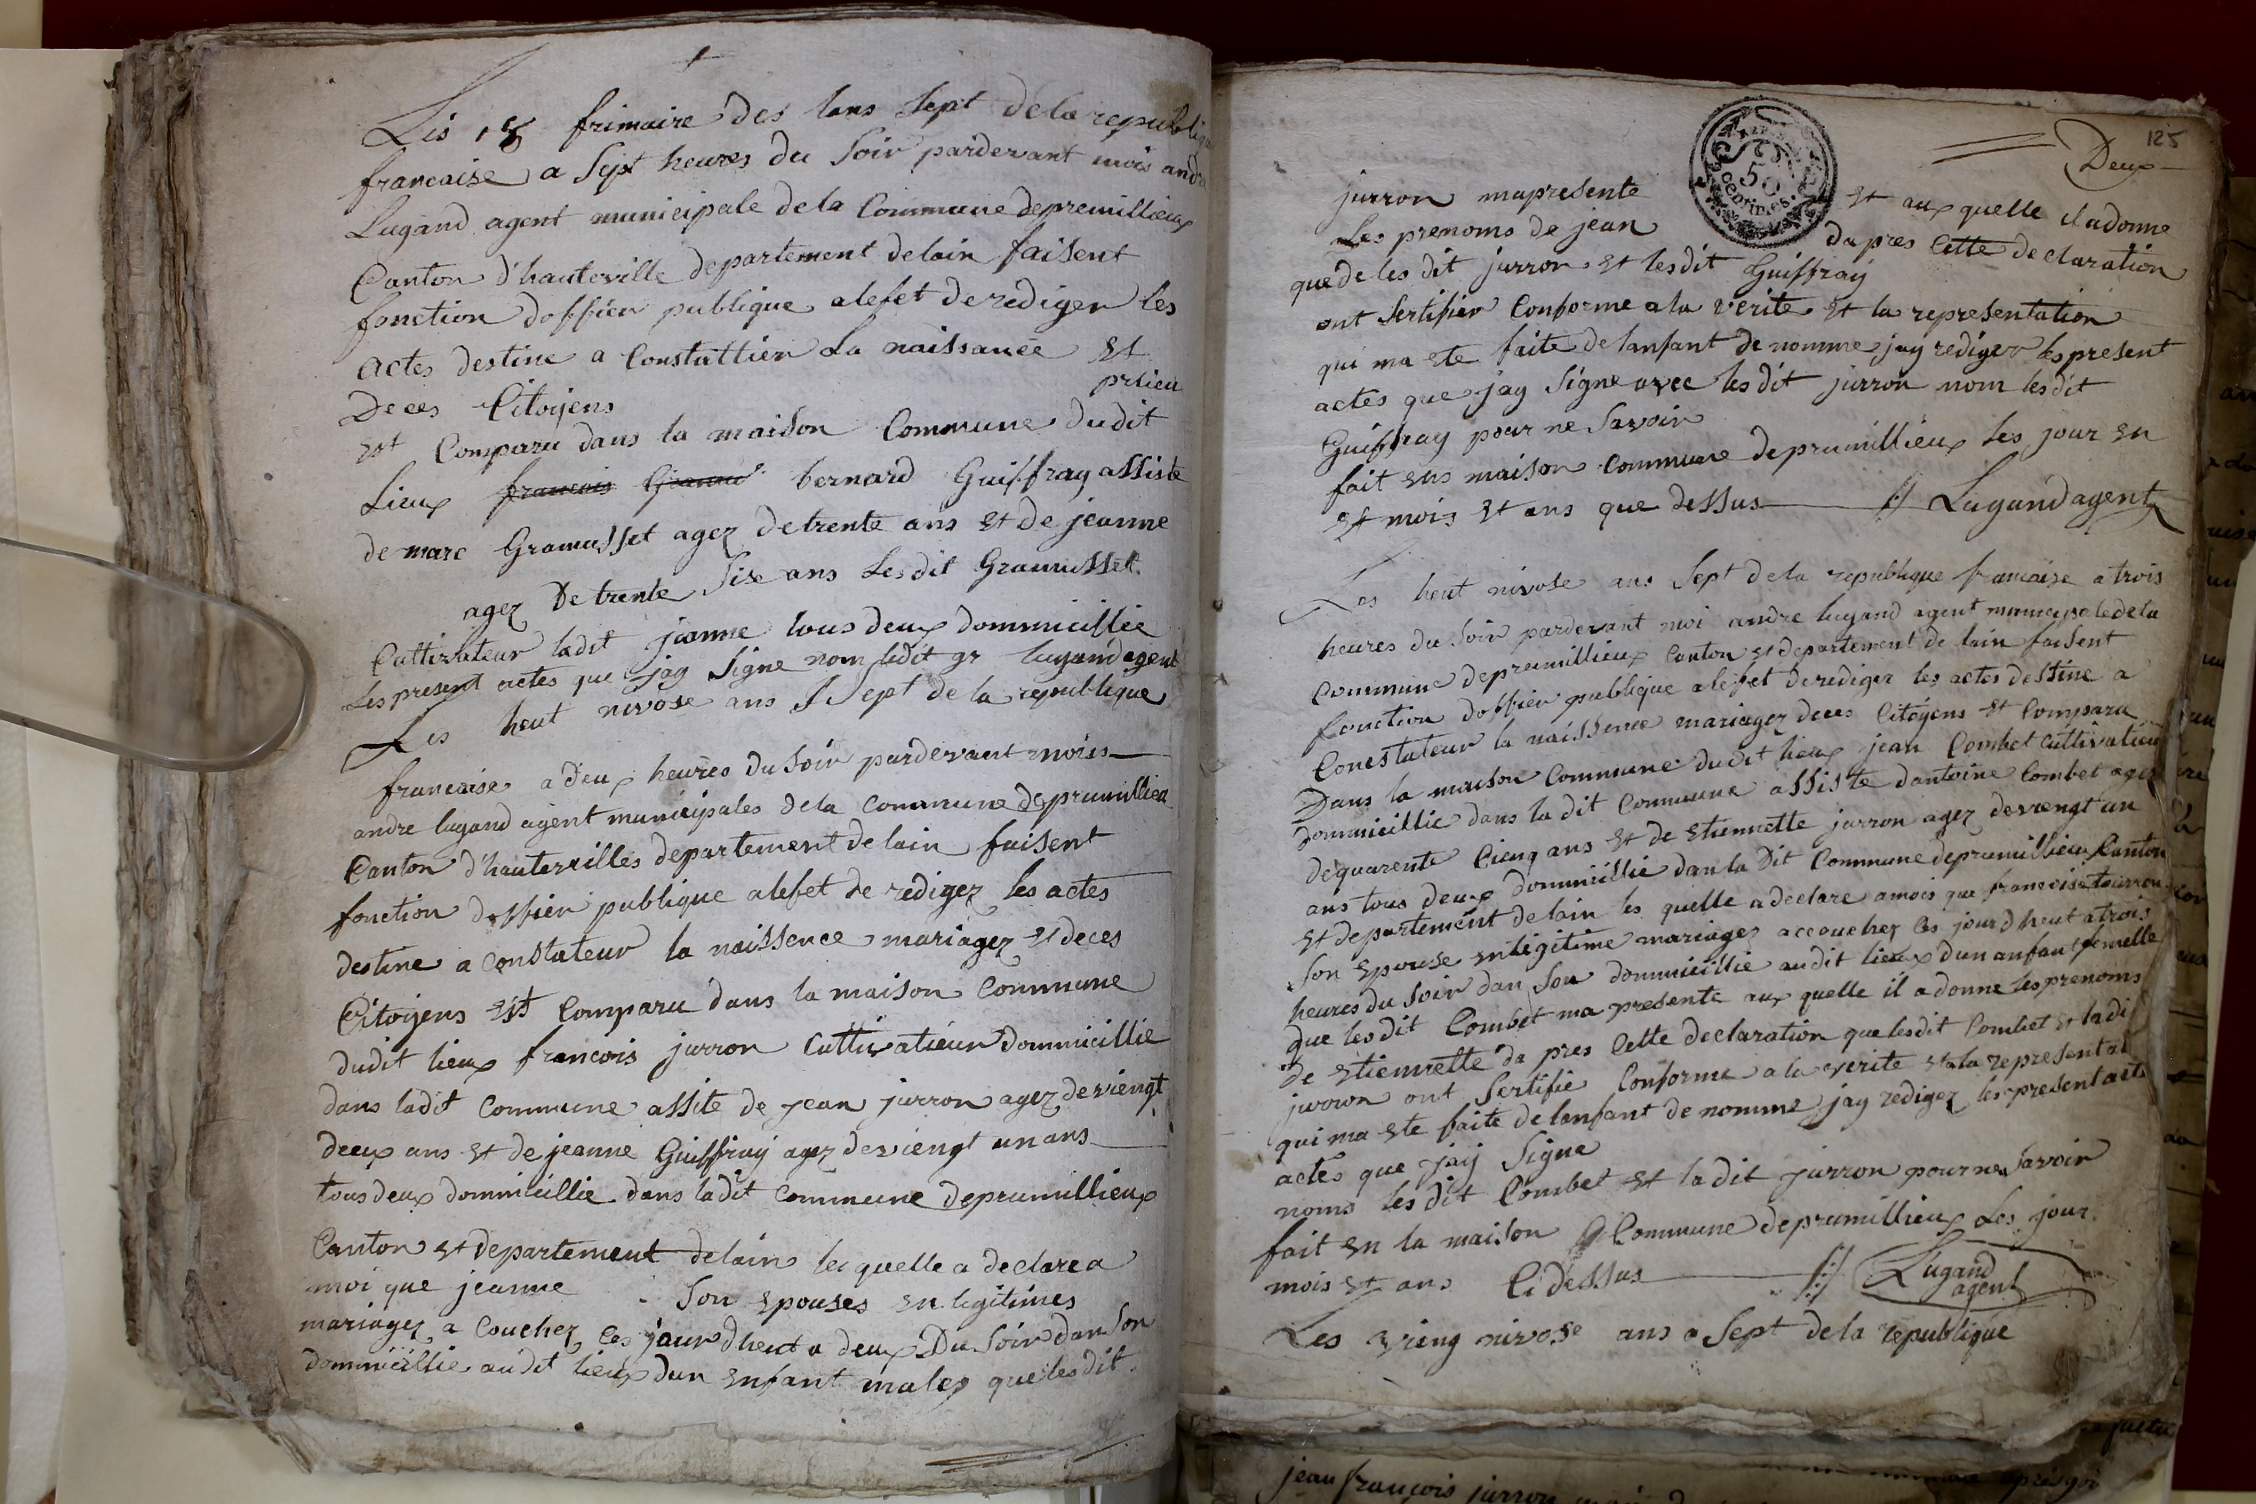 Les 18 frimaire des lans Sept de la republique
francaise a Sept heures du Soir pardevant mois andre
Lugand agent municipale de la Commune depremillieux
Canton d'hauteville departement delain faisent
fonction doffiien publique alefet derediger les
actes destine a Constattien La naissance Et
Deces Citoyens
Est Comparu dans la maison Commune dudit
Lieux francois bernard Guiffray assiste
de marc Gramusset agez detrente ans Et de jeanne
agez De trente Sise ans Lesdit Gramusset
Cultivateur ladit jeanne tous deux dommicillie
Les present actes que jay Signe nom ledit gr lugand agent
Les heut nivose ans Sept de la republique
francaise a deux heures du Soir pardevant mois
andre lugand agent municipales de la Commune deprumillieu
Canton d'hautevilles departement de lain faisent
fonction doffien publique alefet de redigez les actes
destine a Constateur la naissence mariagez Et deces
Citoyens Est Comparu dans la maison Commune
dudit lieux francois jurron Cultivatieur Dommicillie
dans ladit Commune assite de jean jurron agez deviengt
deux ans Et de jeanne Guiffray agez deviengt un ans
tous deux dommicillie dans ladit Commune deprumillieux
Canton Et departement delain les quelle a declare a
moi que jeanne Son Epouses En legitimes
mariagez a Couchez Ces jour dheut a deux Du Soir dan Son
dommicillie audit lieux dun Enfant males que lesdit
125
Deux
50
Centimes
jurron mapresente Et aux quelle il adonne
Les prenoms de jean dapres Cette declaration
que de les dit jurron Et lesdit Guiffray
ont Sertifier Conforme a la verite Et la representation
qui ma Ete faite de lanfant de nomme jay rediger les present
actes que jay Signe avec lesdit jurron nom lesdit
Guiffray pour ne Savoir
fait Ens maison Commune deprumillieux les jour En
Et mois Et ans que dessus Lugand agent
Les heut nivose ans Sept de la republique francaise a trois
heures du Soir pardevant moi andre lugand agent municipale de la
Commune deprumillieux Canton Et departement de lain faisent
fonction doffien publique alefet derediger les actes destine a
Constateur la naissence mariagez deces Citoyens Et Comparu
Dans la maison Commune dudit lieux jean Combet Cultivatieur
dommicillie dans la dit Commune assiste dantoine Combet agez
dequarente Cienq ans Et de Etiennette jurron agez deviengt un
ans tous deux dommicillie dan la Dit Commune deprumillieux Canton
Et departement delain les quelle a declare a mois que francoise
Son Epouse Enlegitime mariagez accouchez Ces jour dheut a trois
heures du Soir dan Son dommicillie audit lieux dun anfant femelle
que lesdit Combet ma presente aux quelle il a donne les prenoms
de Etiennette da pres Cette declaration que lesdit Combet Et ladi
jurron ont Sertifie Conforme a la verite Et a la representat
qui ma Ete faite de lanfant de nomme jay redigez les present acte
actes que jay Signe
noms lesdit Combet Et la dit jurron pour ne Savoir
fait En la maison Commune deprumillieux Les jour
mois Et ans Ci dessus Lugand
agent
Les vieng nivose ans a Sept de la republique
jean francois jurron